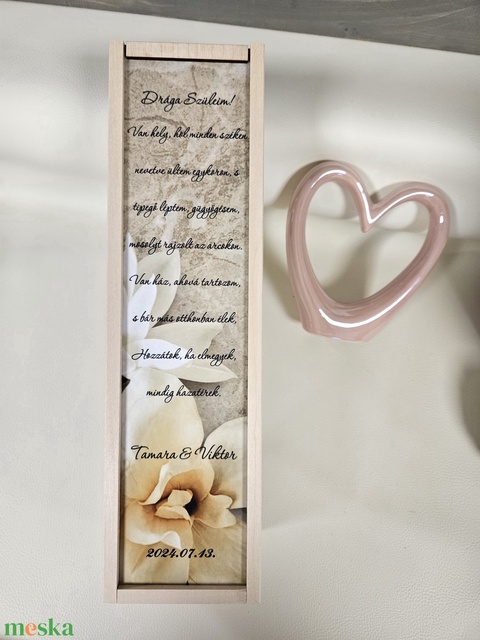 Drága Szüleim!
Van hely, hol minden széken
nevetve ültem egykoron, s
tipegő léptem, gügyögésem,
mosolyt rajzolt az arcokon.
Van ház, ahová tartozom,
s bár más otthonban élek,
Hozzátok, ha elmegyek,
mindig hazatérek.
Tamara & Viktor
2024.07.13.
meska